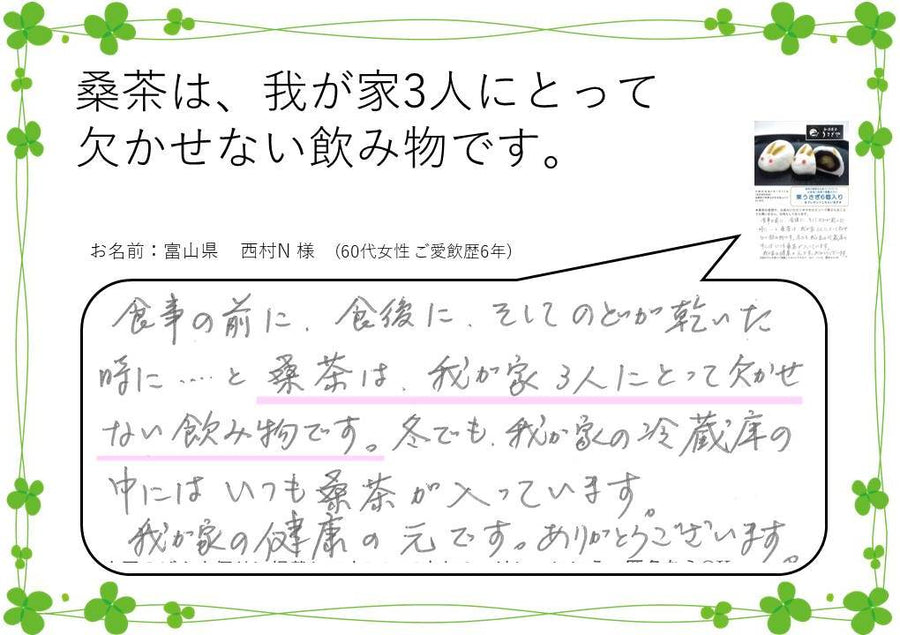 桑茶は、我が家3人にとって
欠かせない飲み物です。
お名前：富山県　西村N 様　(60代女性 ご愛飲歴6年)
桑うさぎ6個入り
食事の前に、食後に、そしてのどが乾いた
時に‥‥と桑茶は、我が家3人にとって欠かせ
ない飲み物です。冬でも、我が家の冷蔵庫の
中にはいつも桑茶が入っています。
我が家の健康の元です。ありがとうございます。